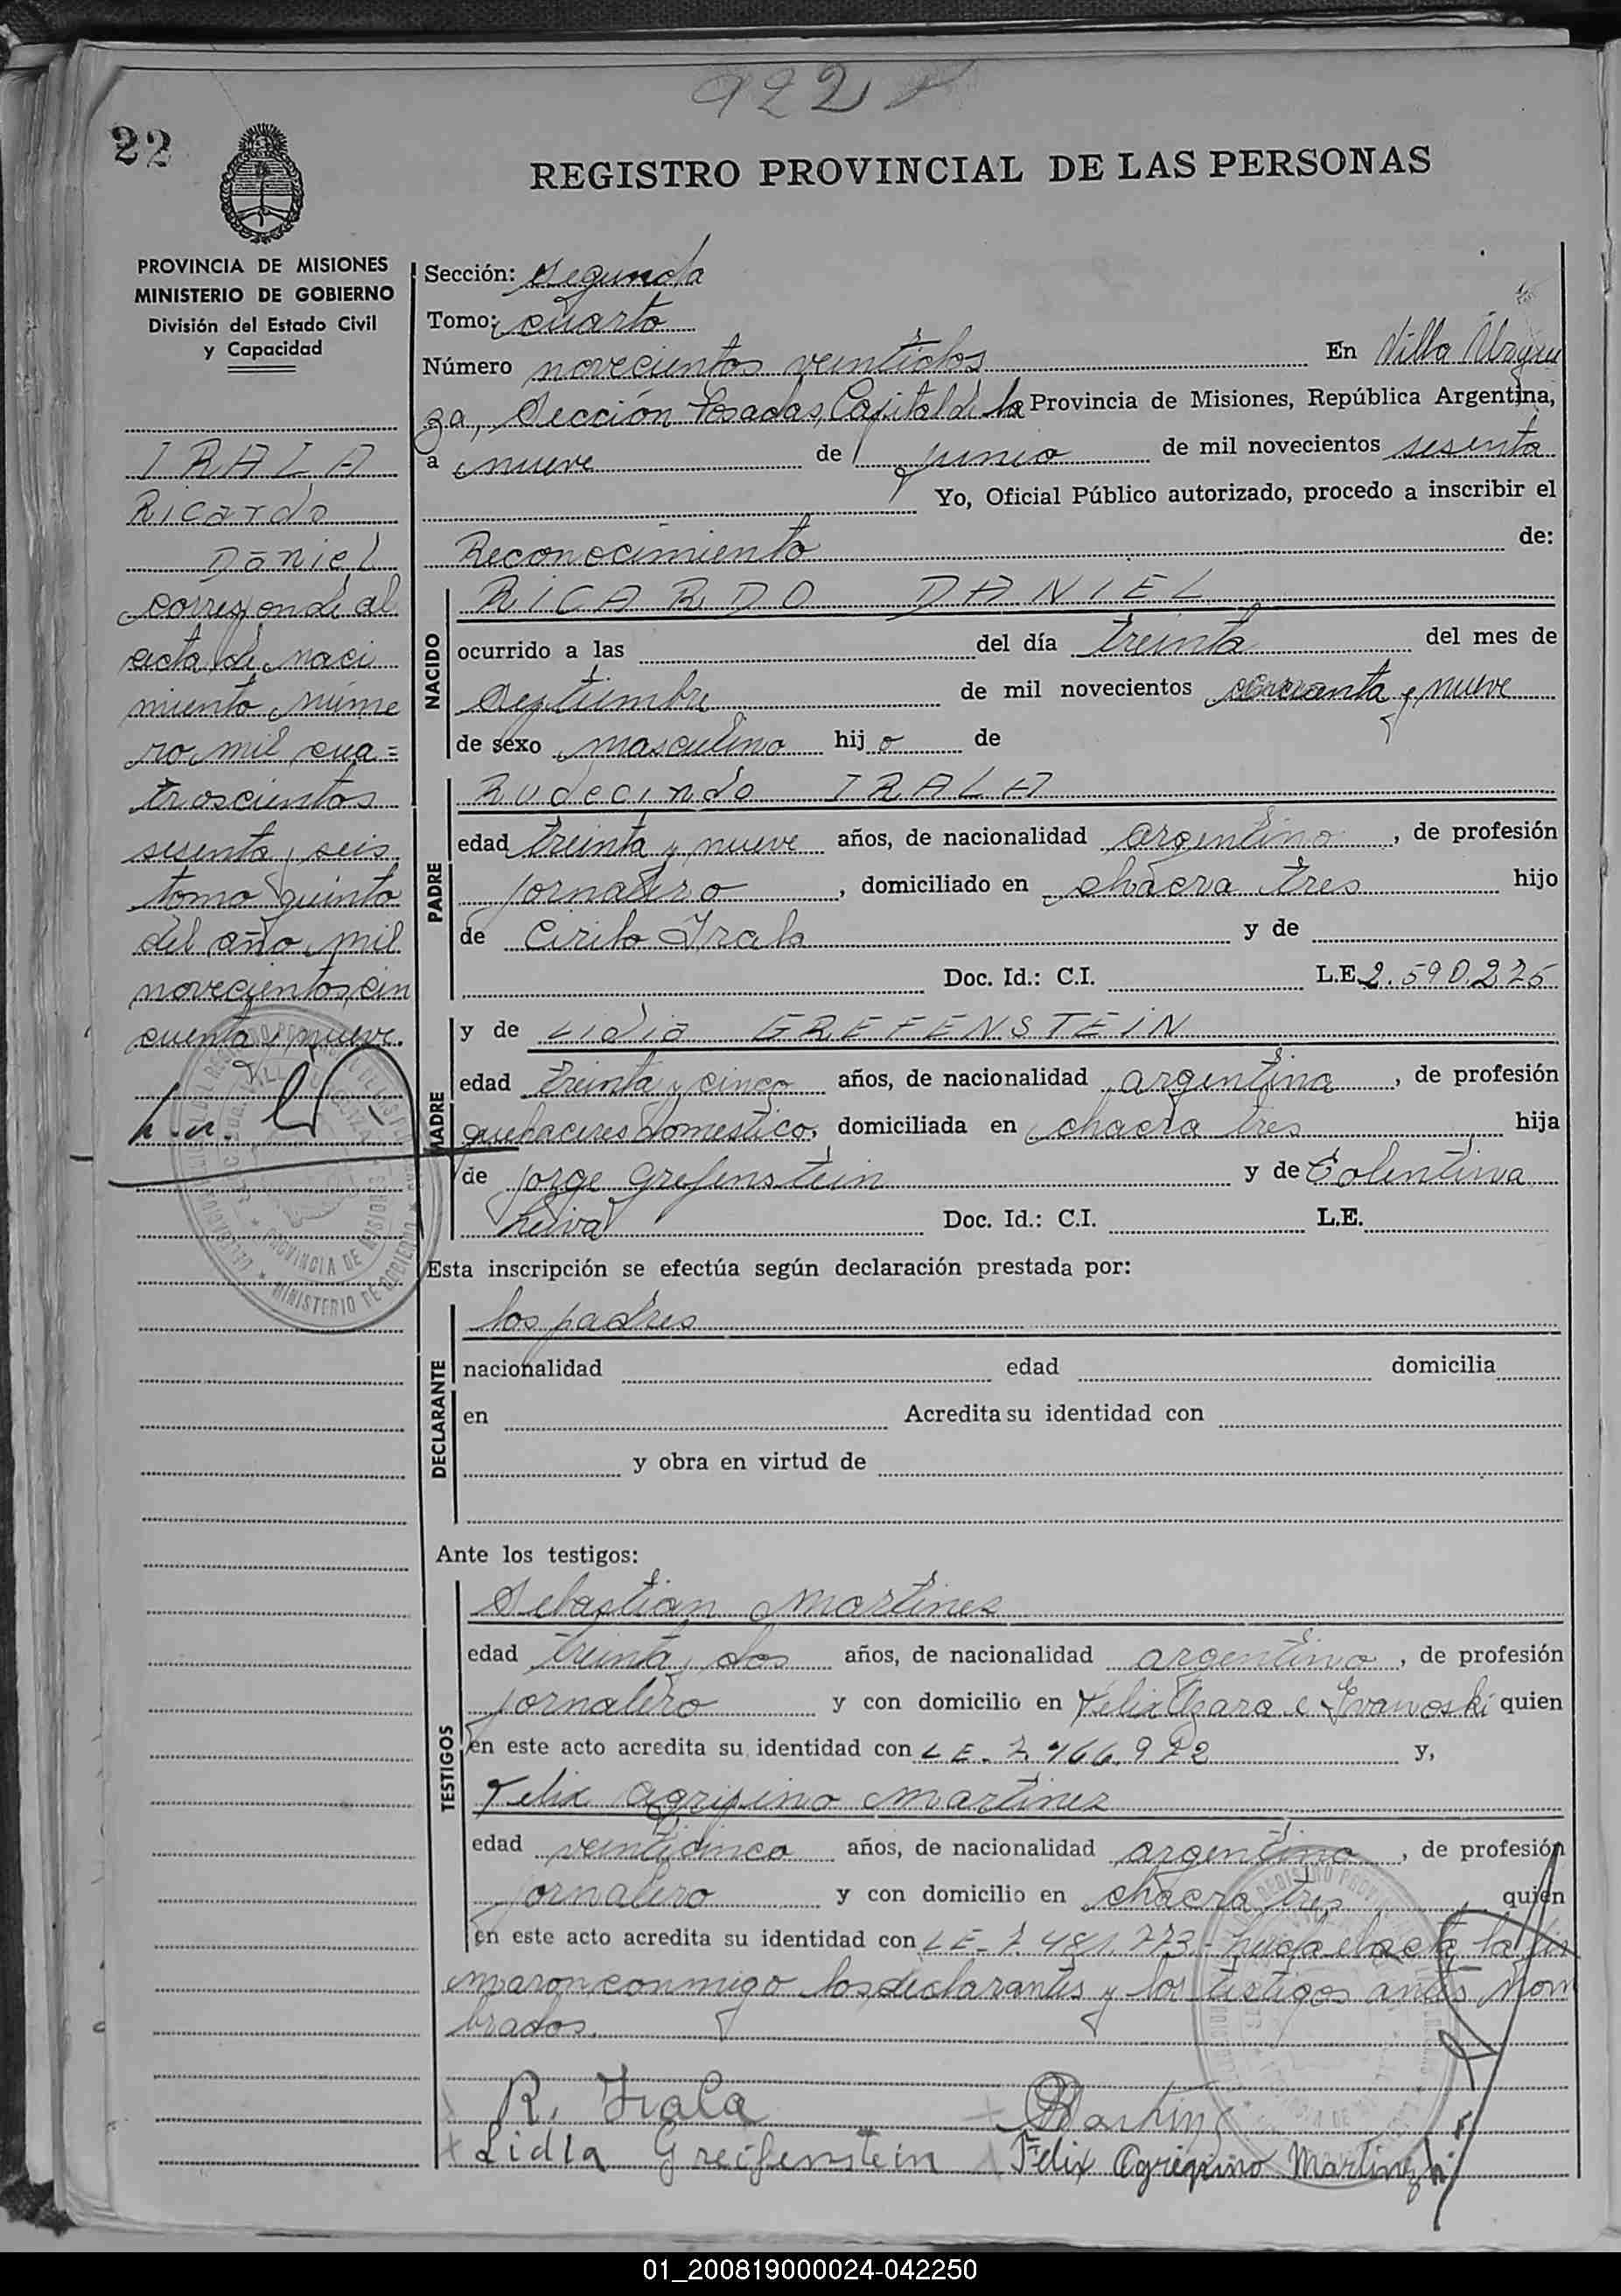 922
22
REGISTRO PROVINCIAL DE LAS PERSONAS
PROVINCIA DE MISIONES
MINISTERIO DE GOBIERNO
División del Estado Civil
y Capacidad
IRALA
Ricardo
Daniel
corresponde al
acta de naci
miento núme
ro mil cua=
troscientos
sesenta y seis
tomo quinto
del año mil
novecientos cin
cuenta y nueve.
Sección: segunda
Tomo: cuarto
Número novecientos veintidos En Villa
za, Sección Posadas, Capital de la Provincia de Misiones, República Argentina,
a nueve de junio de mil novecientos sesenta
Yo, Oficial Público autorizado, procedo a inscribir el
Reconocimiento de:
NACIDO
RICARDO DANIEL
ocurrido a las del día treinta del mes de
Septiembre de mil novecientos cincuenta y nueve
de sexo masculino hijo de
PADRE
Rudecindo IRALA
edad treinta y nueve años, de nacionalidad argentino, de profesión
jornalero, domiciliado en chacra tres hijo
de Cirilo Irala y de
Doc. Id.: C.I. L.E. 2.590.225
MADRE
y de Lidia GREFENSTEIN
edad treinta y cinco años, de nacionalidad argentina, de profesión
quehaceres domestico, domiciliada en chacra tres hija
de Jorge Grefenstein y de Tolentina
Leiva Doc. Id.: C.I. L.E.
Esta inscripción se efectúa según declaración prestada por:
DECLARANTE
los padres
nacionalidad edad domicilia
en Acredita su identidad con
y obra en virtud de
Ante los testigos:
TESTIGOS
Sebastian Martinez
edad treinta y dos años, de nacionalidad argentino, de profesión
jornalero y con domicilio en Felix Azara e Ivanoski quien
en este acto acredita su identidad con LE. y,
Felix Agripino Martinez
edad veinticinco años, de nacionalidad argentino, de profesión
jornalero y con domicilio en chacra tres quien
en este acto acredita su identidad con LE- 7.481.773- Leida el acta, la fir
maron conmigo los declarantes y los testigos antes nom
brados.
R. Irala
Lidia Greifenstein Felix Agripino Martinez
01_200819000024-042250